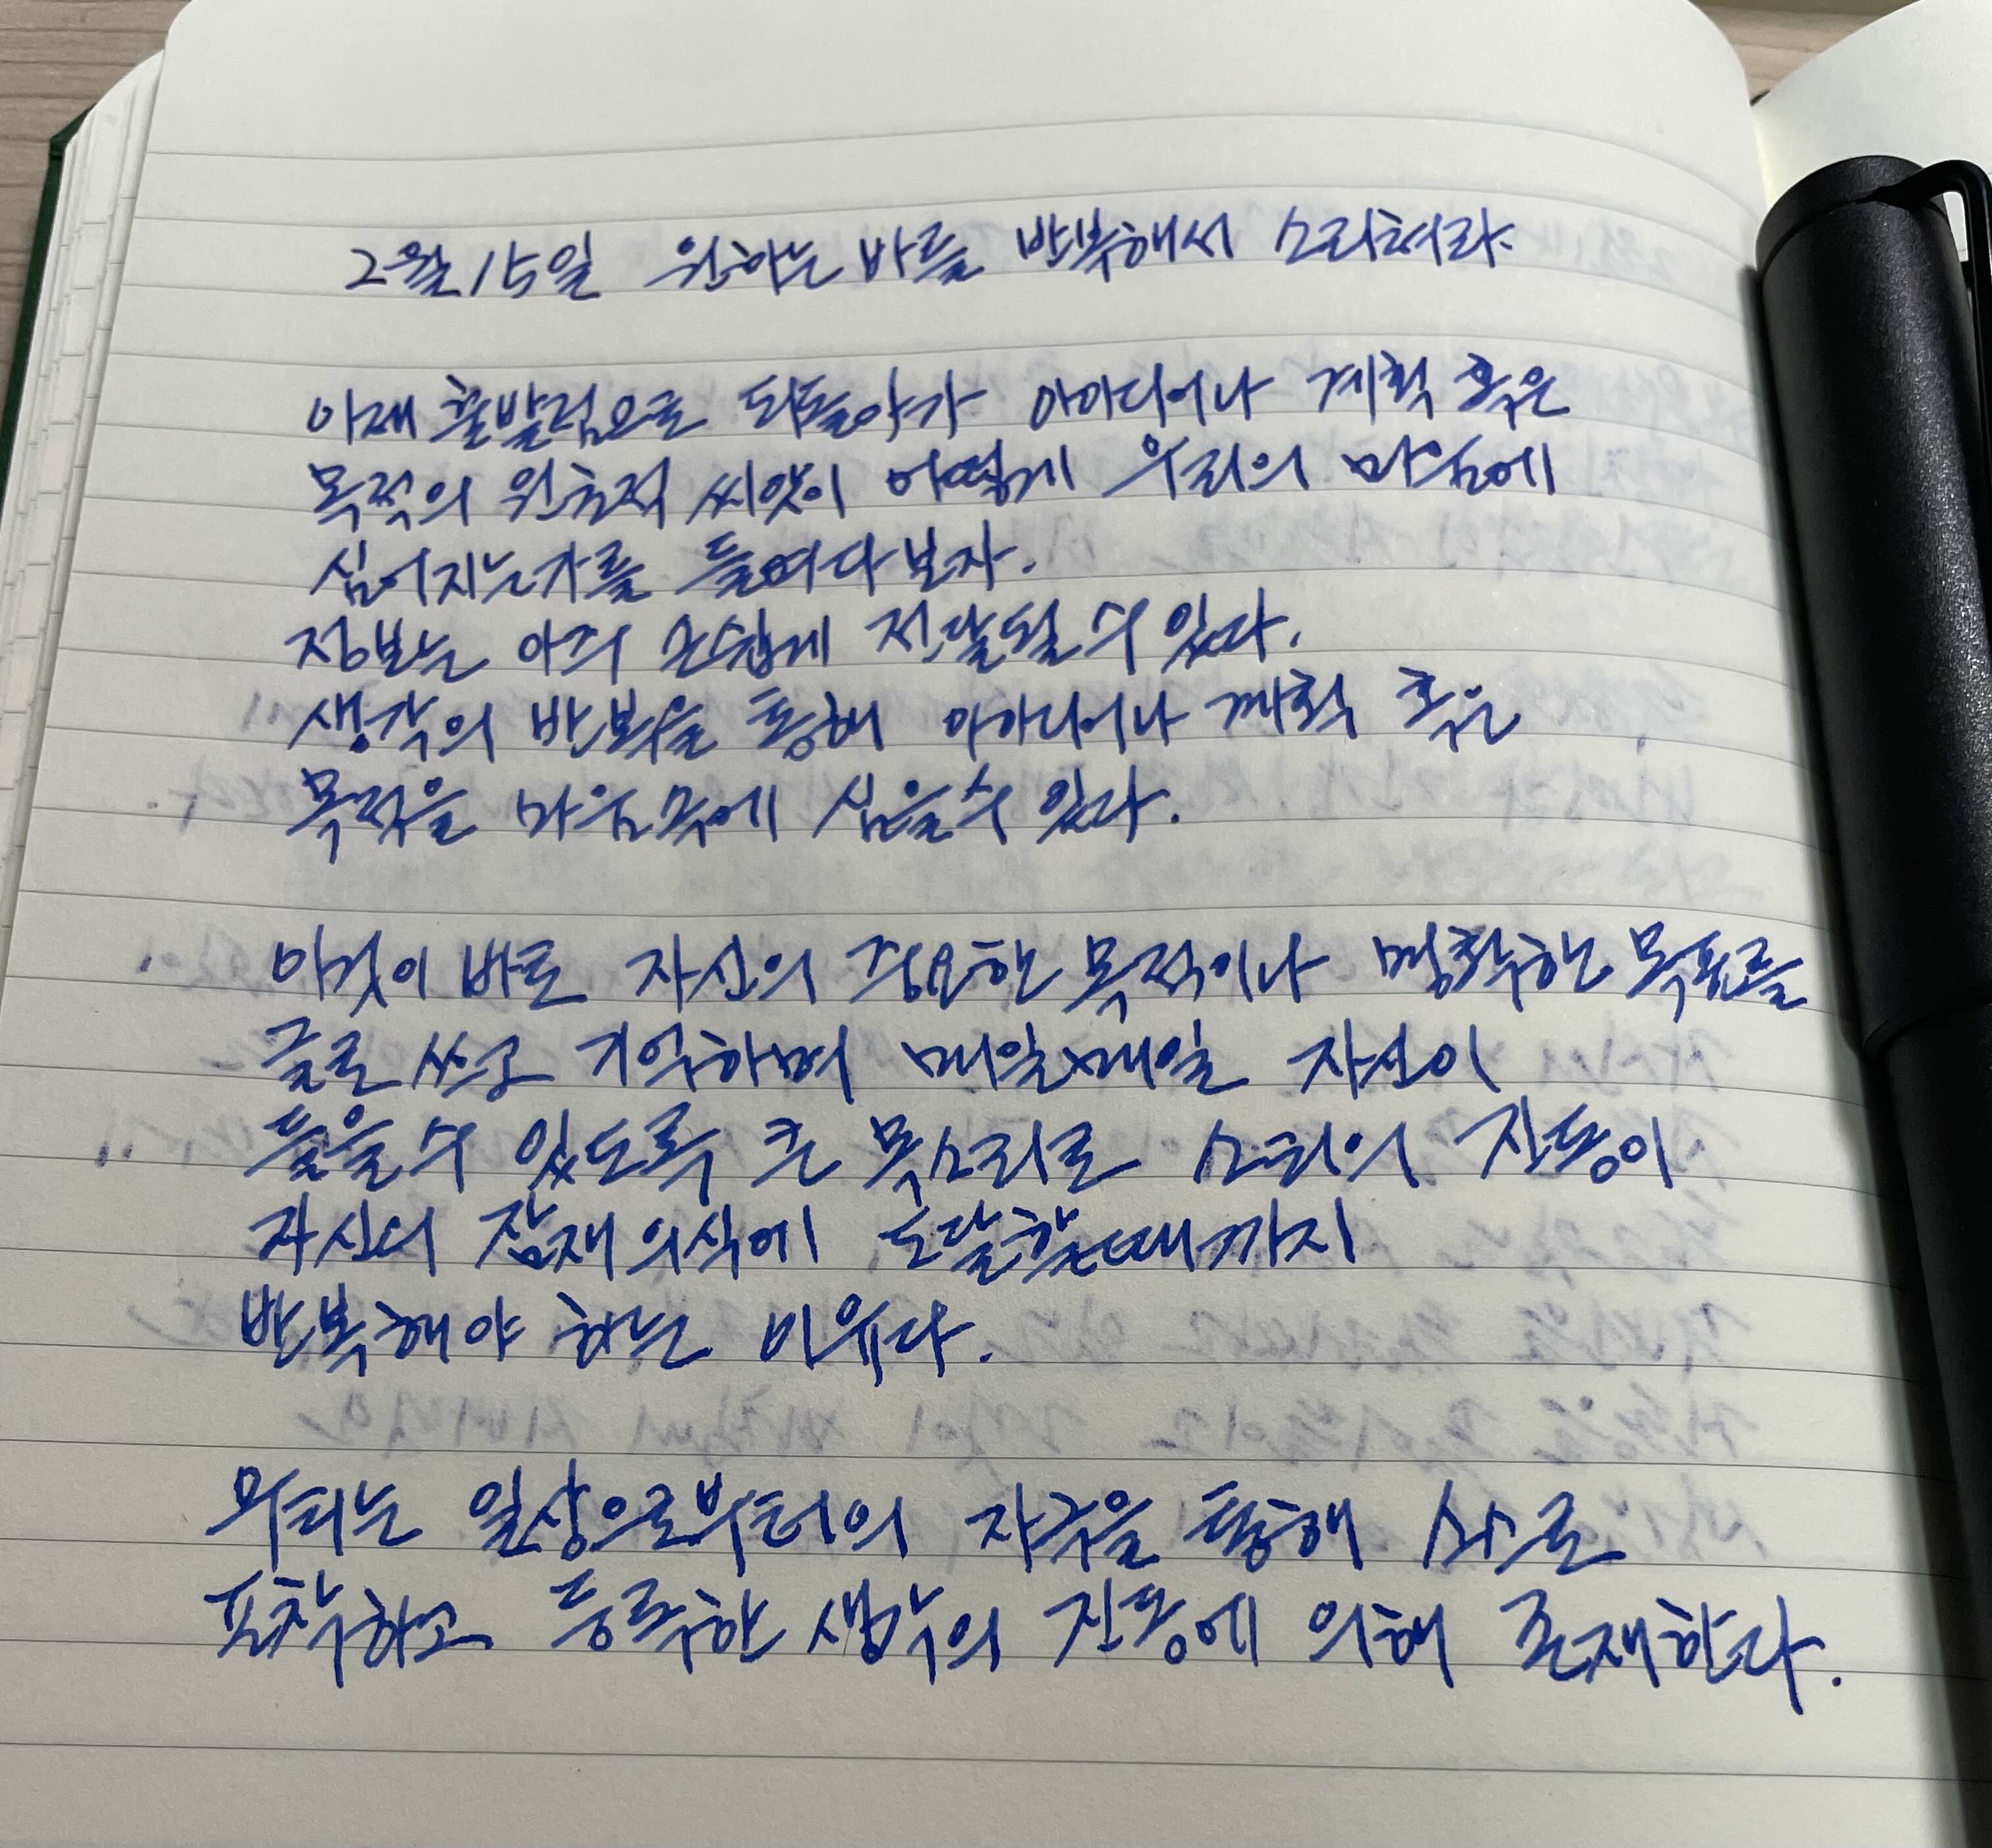 2월 15일 원하는 바를 반복해서 소리쳐라.
이제 출발점으로 되돌아가 아이디어나 계획 혹은
목적의 원초적 씨앗이 어떻게 우리의 마음에
심어지는가를 들여다보자.
정보는 아주 손쉽게 전달될 수 있다.
생각의 반복을 통해 아이디어나 계획 혹은
목적을 마음 속에 심을 수 있다.
이것이 바로 자신의 중요한 목적이나 명확한 목표를
글로 쓰고 기억하며 매일매일 자신이
들을 수 있도록 큰 목소리로 소리의 진동이
자신의 잠재의식에 도달할 때까지
반복해야 하는 이유다.
우리는 일상으로부터의 자극을 통해 스스로
포착하고 등록한 생각의 진동에 의해 존재한다.